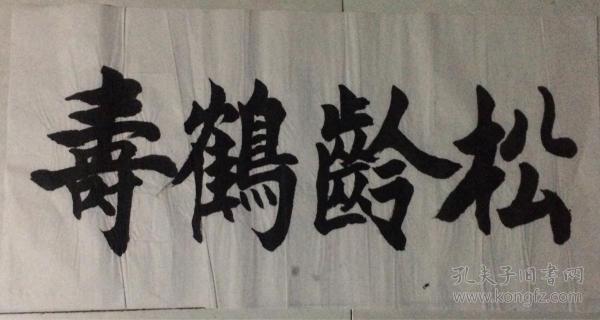 松齡鶴壽
孔夫子旧书网
www.kongfz.com